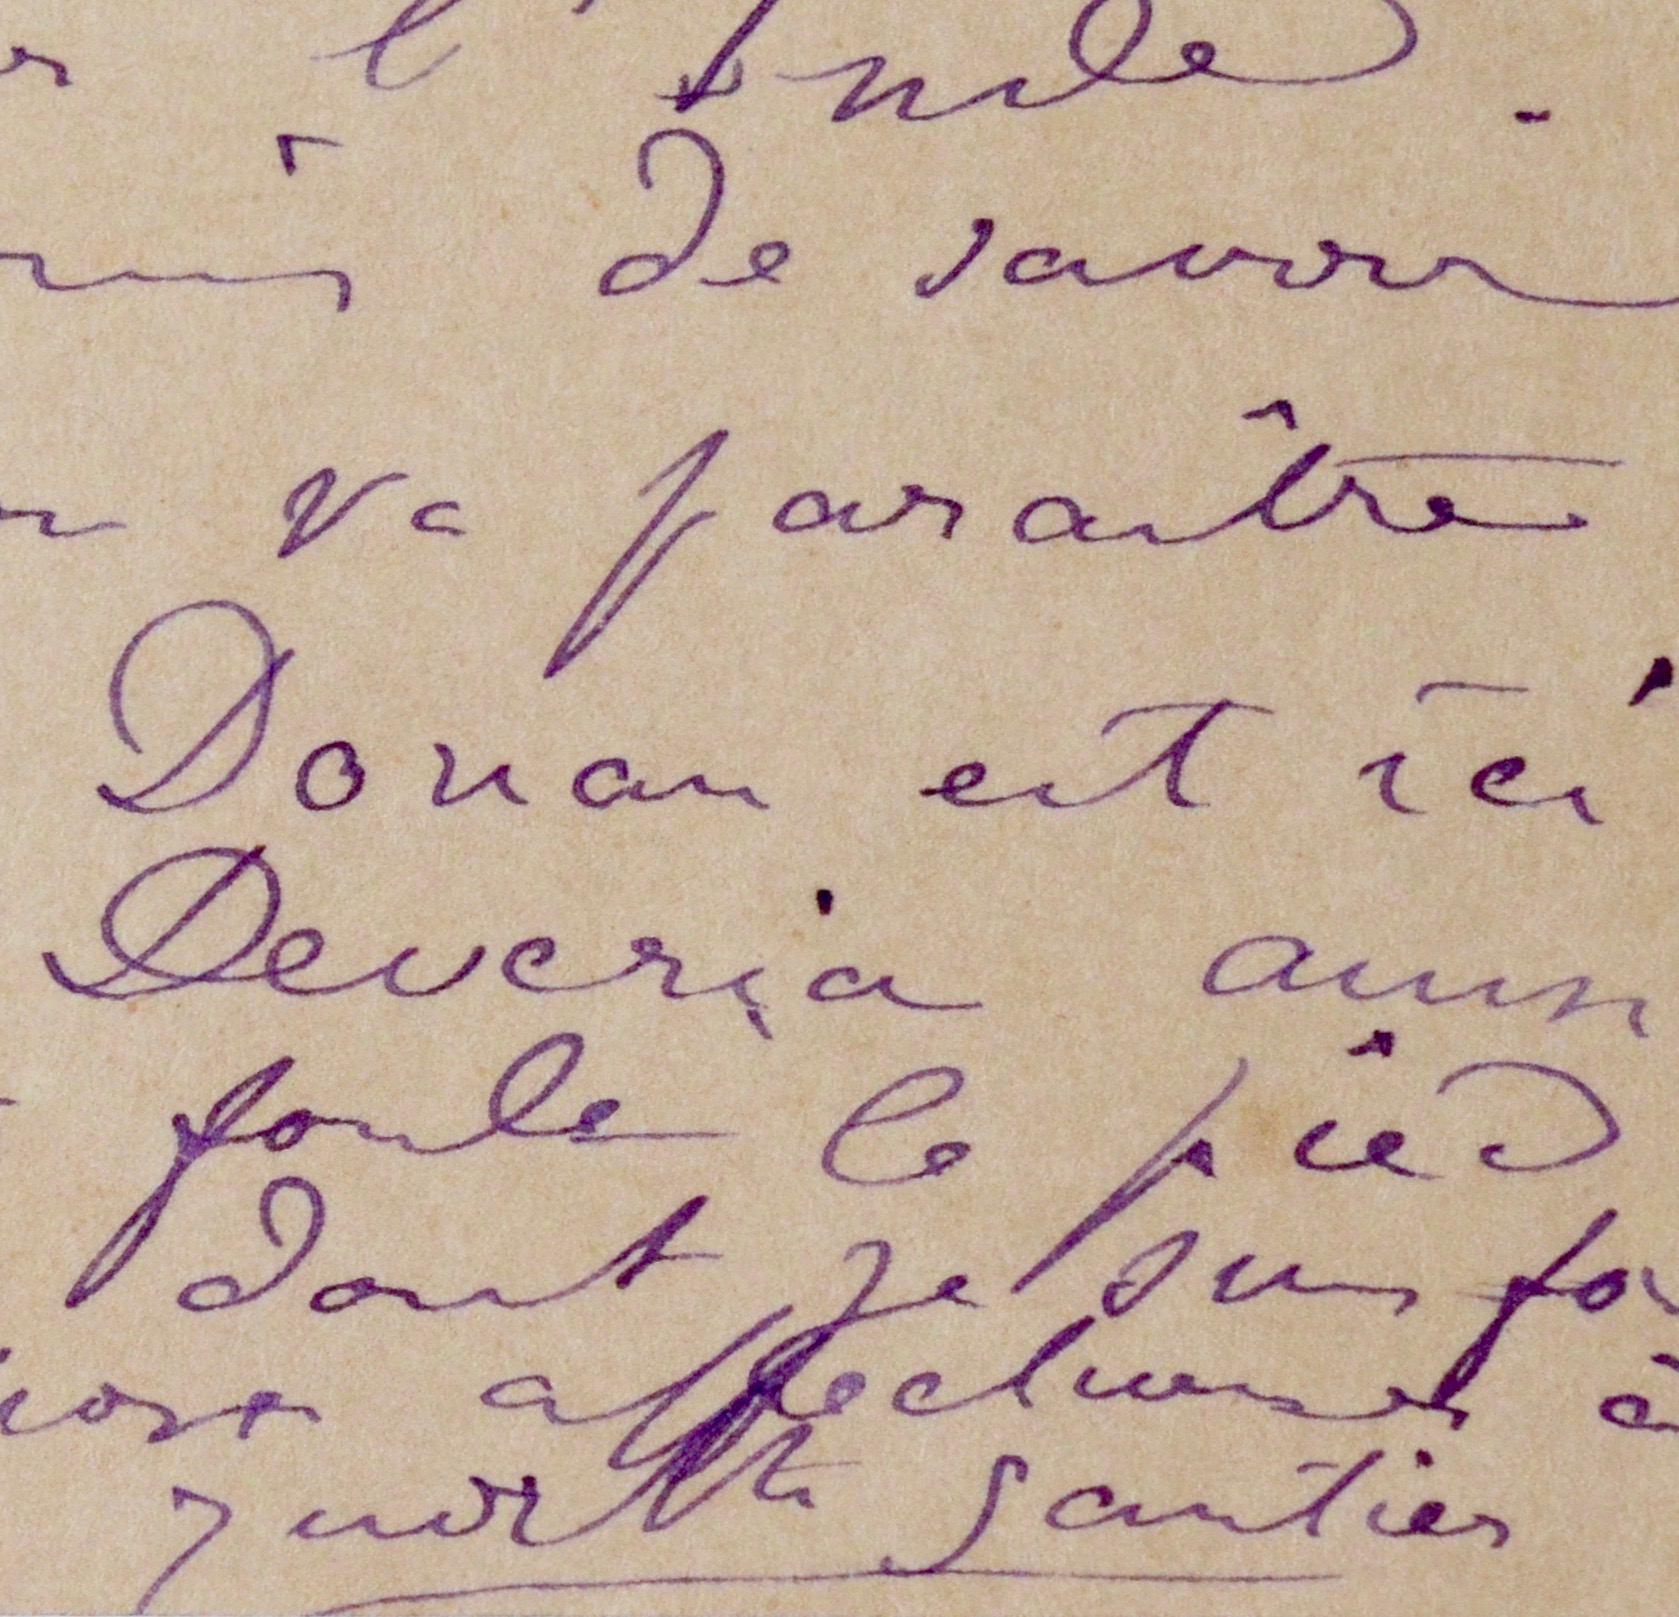 l'Inde.
de savoir
va paraître
Donan est ici
Deveria aussi
foule le pied
dont je suis
affectueuses à
Judith Gautier